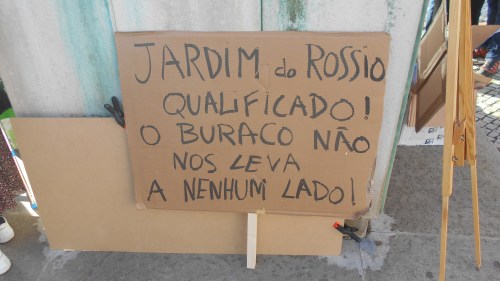 JARDIM do ROSSIO
QUALIFICADO!
O BURACO NÃO
NOS LEVA
A NENHUM LADO!